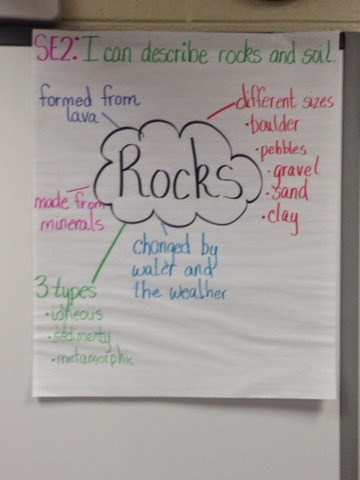 SE2: I can describe rocks and soil.
formed from
lava
different sizes
• boulder
• pebbles
• gravel
• sand
• clay
Rocks
made from
minerals
changed by
water and
the weather
3 types
• igneous
• sedimenty
• metamorphic